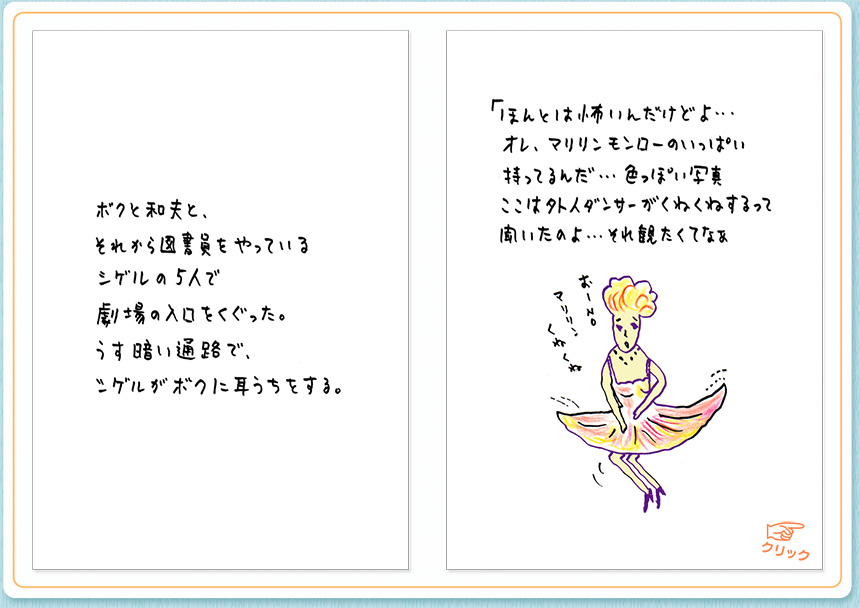 ボクと和夫と、
それから図書員をやっている
シゲルの5人で
劇場の入口をくぐった。
うす暗い通路で、
シゲルがボクに耳うちをする。
「ほんとは怖いんだけどよ…
オレ、マリリンモンローのいっぱい
持ってるんだ…色っぽい写真
ここは外人ダンサーがくねくねするって
聞いたのよ…それ観たくてなぁ
おーNO
マリリン
くねくね
クリック